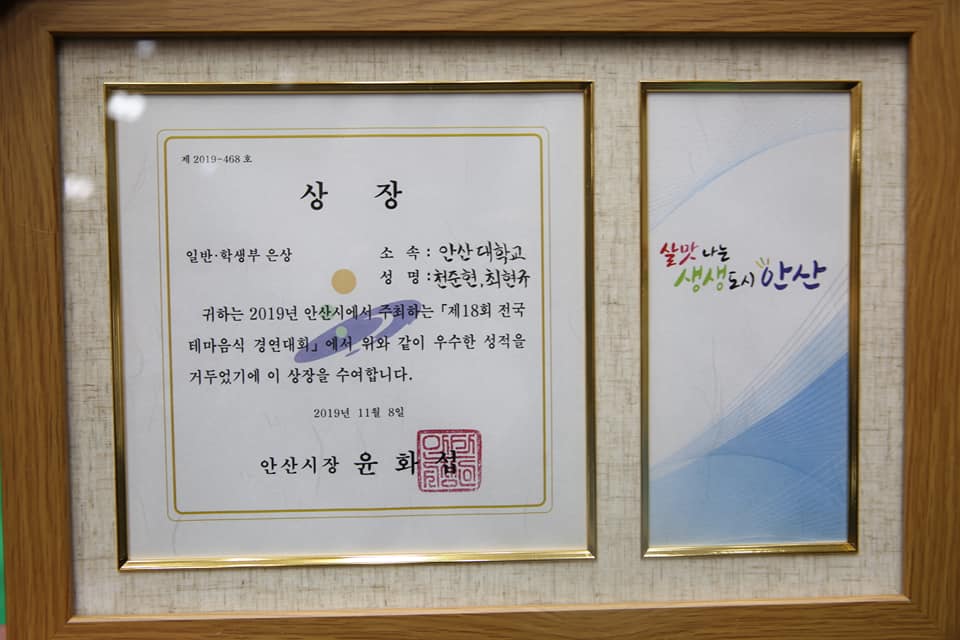 제 2019-468 호
상 장
일반·학생부 은상
소 속 : 안산대학교
성 명 : 천준현, 최현규
귀하는 2019년 안산시에서 주최하는 「제18회 전국
테마음식 경연대회」에서 위와 같이 우수한 성적을
거두었기에 이 상장을 수여합니다.
2019년 11월 8일
안산시장 윤 화 섭
살맛 나는
생생도시 안산